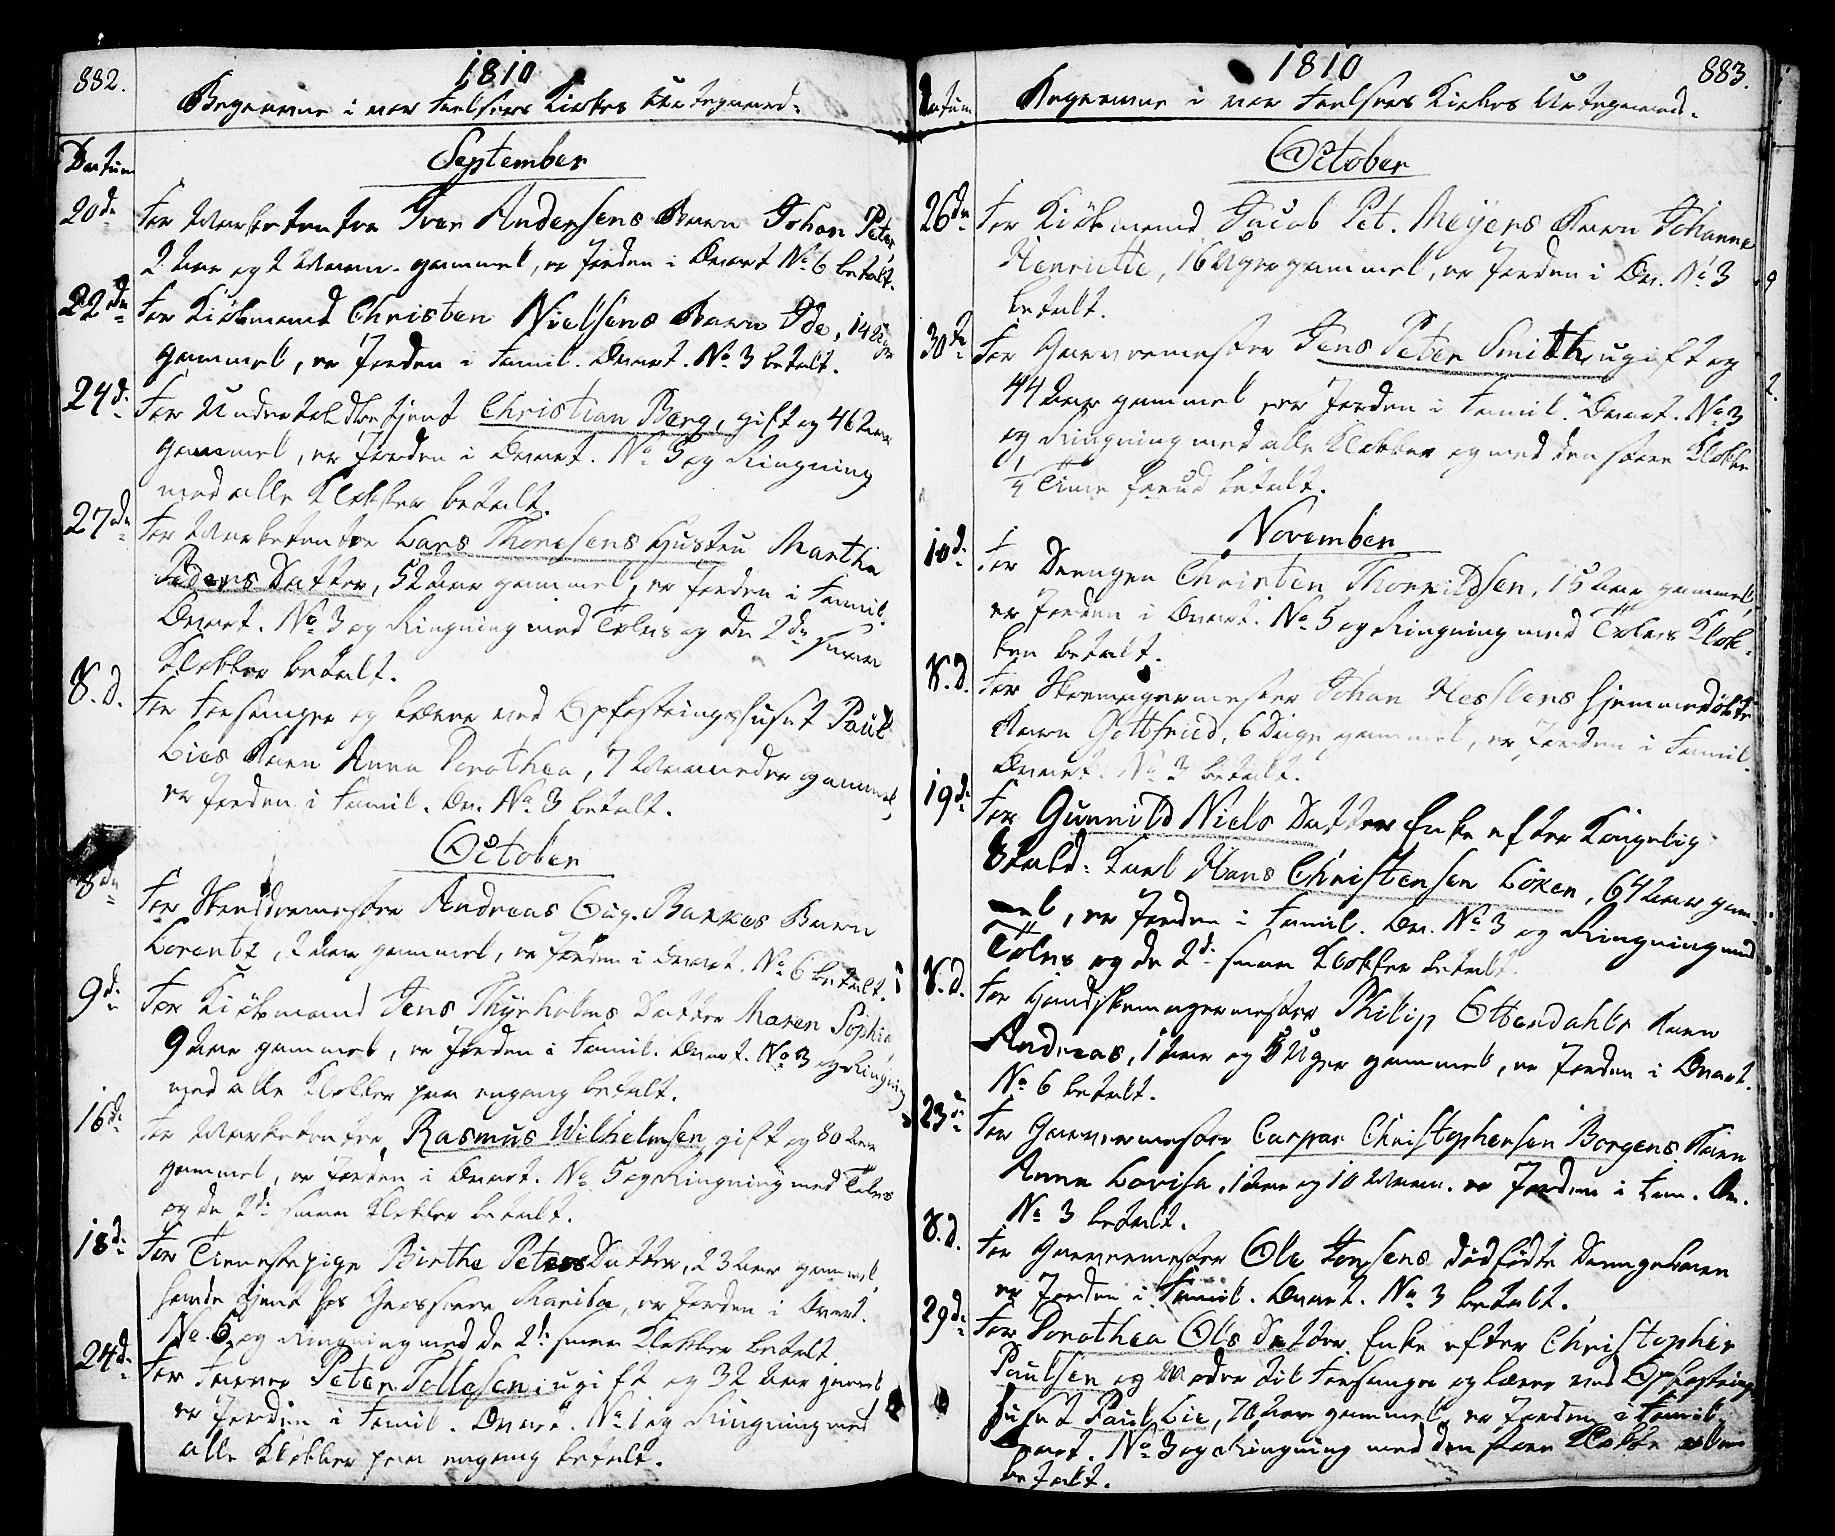 882.
1810
Begravne i vor Frelsers Kirkes Urtegaard.
Datum
September
20de For Marketenter Iver Andersens Barn Johan Peter
2 Aar og 2 Maan. gammel, er Jorden i Qvart. No 6 betalt.
22de For Kiøbmand Christen Nielsens Barn Ide, 14 Uger
gammel, er Jorden i Famil. Qvart. No 3 betalt.
24de For Undertoldbetjent Christian Berg, gift og 46 Aar
gammel, er Jorden i Qvart. No 5 og Ringning
med alle Klokker betalt.
27de For Marketenter Lars Thoresens Hustru Marthe
Peders Datter, 52 Aar gammel, er Jorden i Famil.
Qvart. No 3 og Ringning med Tolvs og de 2de smaa
Klokker betalt.
S. D. For Forsanger og Lærer ved Opfostringshuset Paul
Lies Barn Anna Dorothea, 7 Maaneder gammel,
er Jorden i Famil. Qv. No 3 betalt.
October
8de For Skreddermester Andreas Aug. Backes Barn
Lorentz, 2 Aar gammel, er Jorden i Qvart. No 6 betalt.
9de For Kiøbmand Jens Thyrholms Datter Maren Sophia
9 Aar gammel, er Jorden i Famil. Qvart. No 3 og Ringning
med alle Klokker paa engang betalt.
16de For Marketenter Rasmus Wilhelmsen, gift og 80 Aar
gammel, er Jorden i Qvart. No 5 og Ringning med Tolvs
og de 2de smaa Klokker betalt.
18de For Tienestepige Birthe Peters Datter, 23 Aar gammel,
havde tjent hos Grosserer Mariboe, er Jorden i Qvart.
No. 6 og Ringning med de 2de smaa Klokker betalt.
24de For Farver Peter Tollesen, ugift og 32 Aar gammel
er Jorden i Famil. Qvart. No 1 og Ringning med
alle Klokker paa engang betalt.
1810
883.
Datum
Begravne i vor Frelsers Kirkes Urtegaard.
October
26de For Kiøbmand Jacob Pet. Meyers Barn Johanne
Henriette, 16 Uger gammel, er Jorden i Qv. No 3
betalt.
30de For Garvermester Jens Peter Smith, ugift og
44 Aar gammel, er Jorden i Famil. Qvart. No 3
og Ringning med alle Klokker og med den store Klokke
1/4 Time forud betalt.
November
10de For Drengen Christen Thorkildsen, 15 Aar gammel,
er Jorden i Qvart. No 5 og Ringning med Tolvs Klok-
ken betalt.
S. D. For Skomagermester Johan Hesslens hjemmedøbte
Barn Gottfried, 6 Dage gammel, er Jorden i Famil.
Qvart. No 3 betalt.
19de For Gunnild Niels Datter Enke efter Kongelig
Stald-Karl Hans Christensen Løken, 64 Aar gam-
mel, er Jorden i Famil. Qv. No 3 og Ringning med
Tolvs og de 2de smaa Klokker betalt.
S. D. For Handskemagermester Philip Ottendahls Barn
Andreas, 1 Aar og 5 Uger gammel, er Jorden i Qvart.
No 6 betalt.
23de For Garvermester Caspar Christophersen Borgens Barn
Anne Lovisa, 1 Aar og 10 Maan. er Jorden i Fam. Qv.
No 3 betalt.
S. D. For Garvermester Ole Jonsens dødfødte Drengebarn
er Jorden i Famil. Qvart. No 3 betalt.
29de For Dorothea Ols Datter, Enke efter Christopher
Paulsen og Moder til Forsanger og Lærer ved Opfostrings-
huset Paul Lie, 70 Aar gammel, er Jorden i Famil.
Qvart. No 3 og Ringning med den store Klokke alene
betalt.